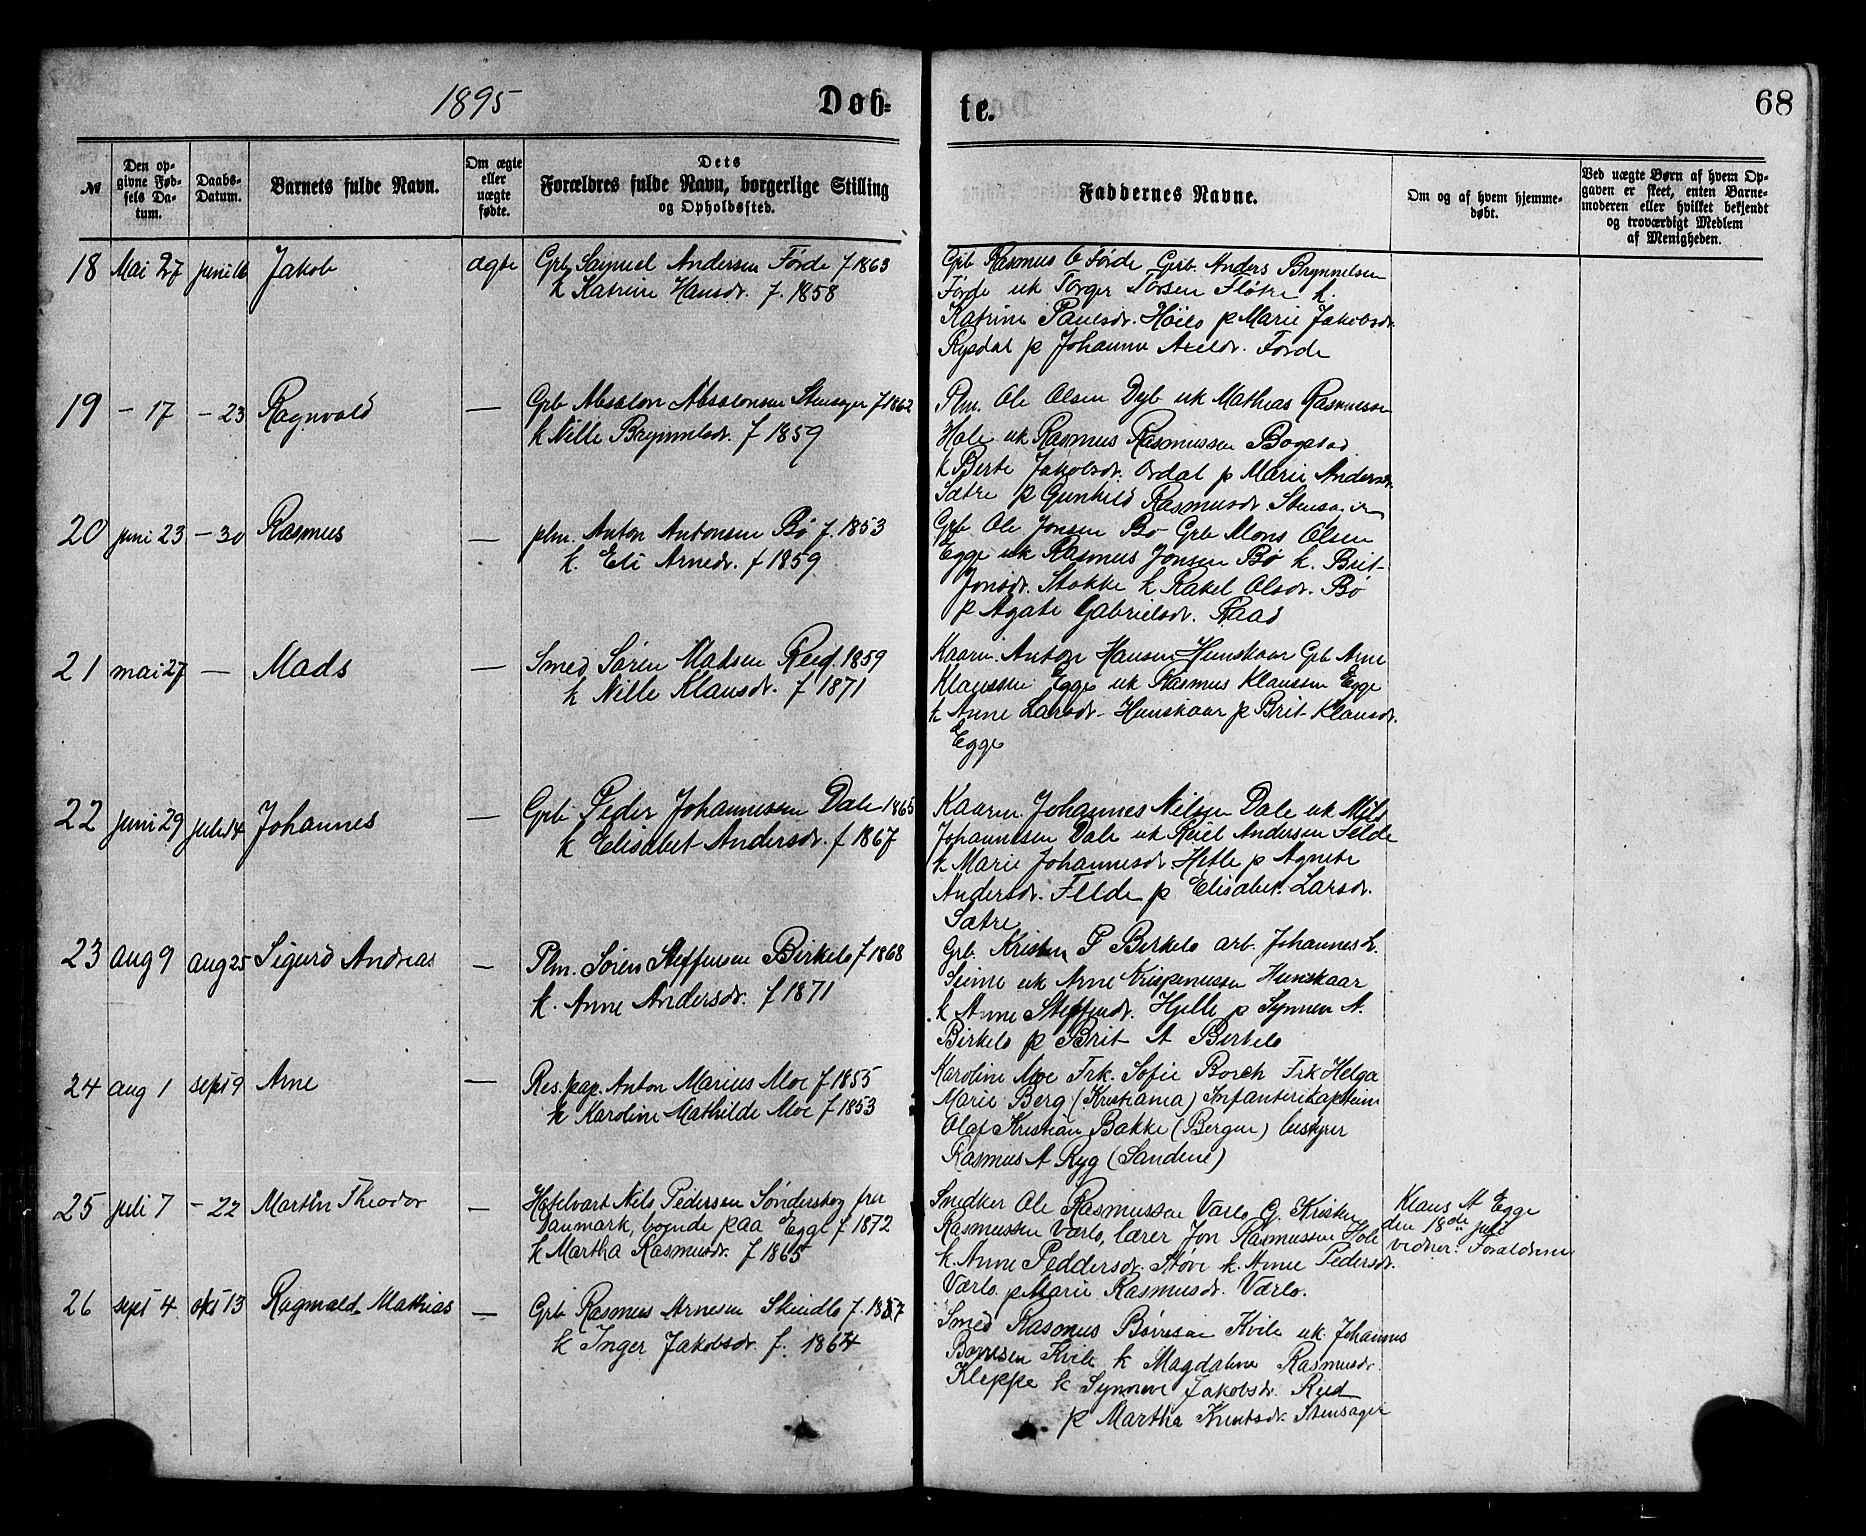 1895
Døb-
te.
68
№
Den op-
givne Fød-
sels Da-
tum.
Daabs-
Datum.
Barnets fulde Navn.
Om ægte
eller
uægte
fødte.
Dets
Forældres fulde Navn, borgerlige Stilling
og Opholdssted.
Faddernes Navne.
Om og af hvem hjemme-
døbt.
Ved uægte Børn af hvem Op-
gaven er skeet, enten Barne-
moderen eller hvilket bekjendt
og troværdigt Medlem
af Menigheden.
18 Mai 27 juni 16 Jakob ægte Grb Samuel Andersen Førde f 1863
k Katrine Hansdr. f. 1858
Grb Rasmus C Førde Grb. Anders Brynnelsen
Førde uk Torger Torsen Fløtre k.
Katrine Paulsdr. Høilo p Marie Jakobsdr.
Rysdal p Johanne Axeldr. Førde
19 - 17 - 23 Ragnvald — Grb Absalon Absalonsen Stensager f 1862
k Nille Brynnelsdr. f 1859
Plm. Ole Olsen Dyb uk Mathias Rasmussen
Hole uk Rasmus Rasmussen Bogstad
k Berte Jakobsdr. Ordal p Marie Andersdr.
Sætre p Gunhild Rasmusdr. Stensager
20 juni 23 - 30 Rasmus — plm. Anton Antonsen Bø f. 1853
k. Eli Arnedr. f 1859
Grb Ole Jonsen Bø Grb Mons Olsen
Egge uk Rasmus Jonsen Bø k. Brit
Jonsdr. Stokke k Rakel Olsdr. Bø
p Agate Gabrielsdr. Raad
21 mai 27 — Mads — Smed Søren Madsen Reed. 1859
k Nille Klausdr. f 1871
Kaarm. Anton Hansen Hunskaar Grb Arne
Klaussen Egge uk Rasmus Klaussen Egge
k Anne Larsdr. Hunskaar p Brit Klausdr.
Egge
22 juni 29 juli 14 Johannes — Grb Peder Johannessen Dale 1865
k Elisabet Andersdr. f 1867
Kaarm. Johannes Nilsen Dale uk Nils
Johannessen Dale uk Andersen Felde
k Marie Johannesdr. Hetle p Agnete
Andersdr. Felde p Elisabet Larsdr.
Sætre
23 aug 9 aug 25 Sigurd Andreas — Plm. Søren Steffensen Birkelo f 1868
k. Anne Andersdr. f 1871
Grb. Kristen P Birkelo arb. Johannes L.
Seime uk Arne Krispinussen Hunskaar
k Anne Steffensdr. Hjelle p Synneve A.
Birkelo p Brit A Birkelo
24 aug 1 sept 9 Arne — Res. kap. Anton Marius Moe f 1855
k Karoline Mathilde Moe f 1853
Karoline Moe Frk. Sofie Borch Frk Helga
Marie Berg (Kristiania) Infanterikaptein
Olaf Kristian Bakke (Bergen) bestyrer
Rasmus A Ryg (Sandene)
25 juli 7 - 22 Martin Theodor — Hotelvert Nils Pedersen Søndersbog fra
Danmark, boende paa Egge f 1872
k Martha Rasmusdr. f 1865
Snedker Ole Rasmussen Varlo G. Kristen
Rasmussen Værlo, lærer Jon Rasmussen Hole
k. Anne Peddersdr. Støve k. Anne Pedersdr.
Værlo. p Marie Rasmusdr. Værlo.
Klaus A Egge
den 18de juli
vidner: Forældrene
26 sept 4 okt 13 Ragnvald Mathias — Grb Rasmus Arnesen Skindlo f. 1857
k Inger Jakobsdr f. 1864
Smed Rasmus Børresen Kvile uk. Johannes
Børresen Kvile k Magdalene Rasmusdr.
Kleppe k Synneve Jakobsdr. Reed
p Martha Knutsdr. Stensager